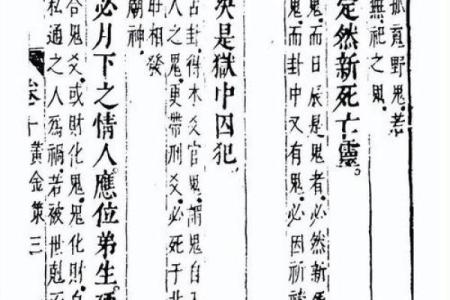 孤寡野鬼若
無祀之鬼
定然新死亡靈。
鬼而日辰是鬼者必然新
鬼而卦中又有鬼必因祈禱
是獄中囚犯。
占卦得木爻官鬼謂鬼自入
人之鬼更帶刑爻必死于
旺相發
廟神
必月下之情人。應位弟生
合鬼爻或財化鬼鬼化財
私通之人為禍若被世尅
卷十 黃金策三